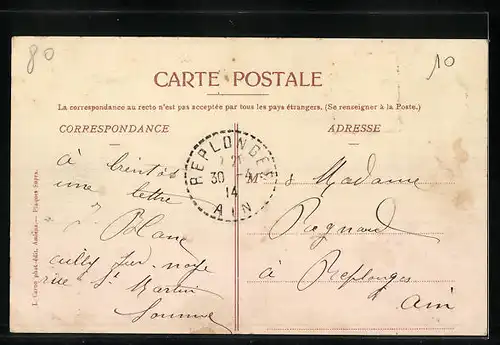 80
10
CARTE POSTALE
La correspondance au recto n'est pas acceptée par tous les pays étrangers. (Se renseigner à la Poste.)
CORRESPONDANCE
ADRESSE
à bientôt
une lettre
Blanc
ailly sur noye
rue St Martin
Somme
REPLONGES
30
14
AIN
Madame
Regnard
à Replonges
ain
L. Caron phot-édit. Amiens